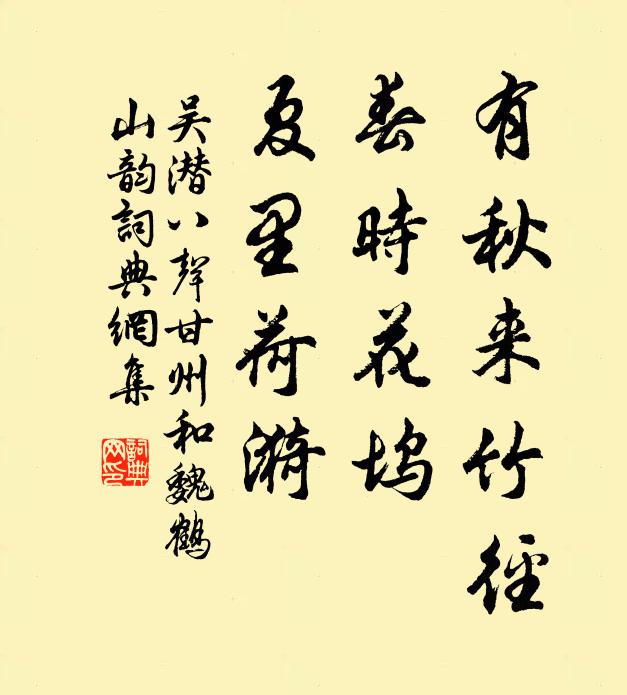 有秋来竹径
春時花坞
夏里荷漪
吴潜八聲甘州和魏鶴
山韵詞典網集
詞典
网印